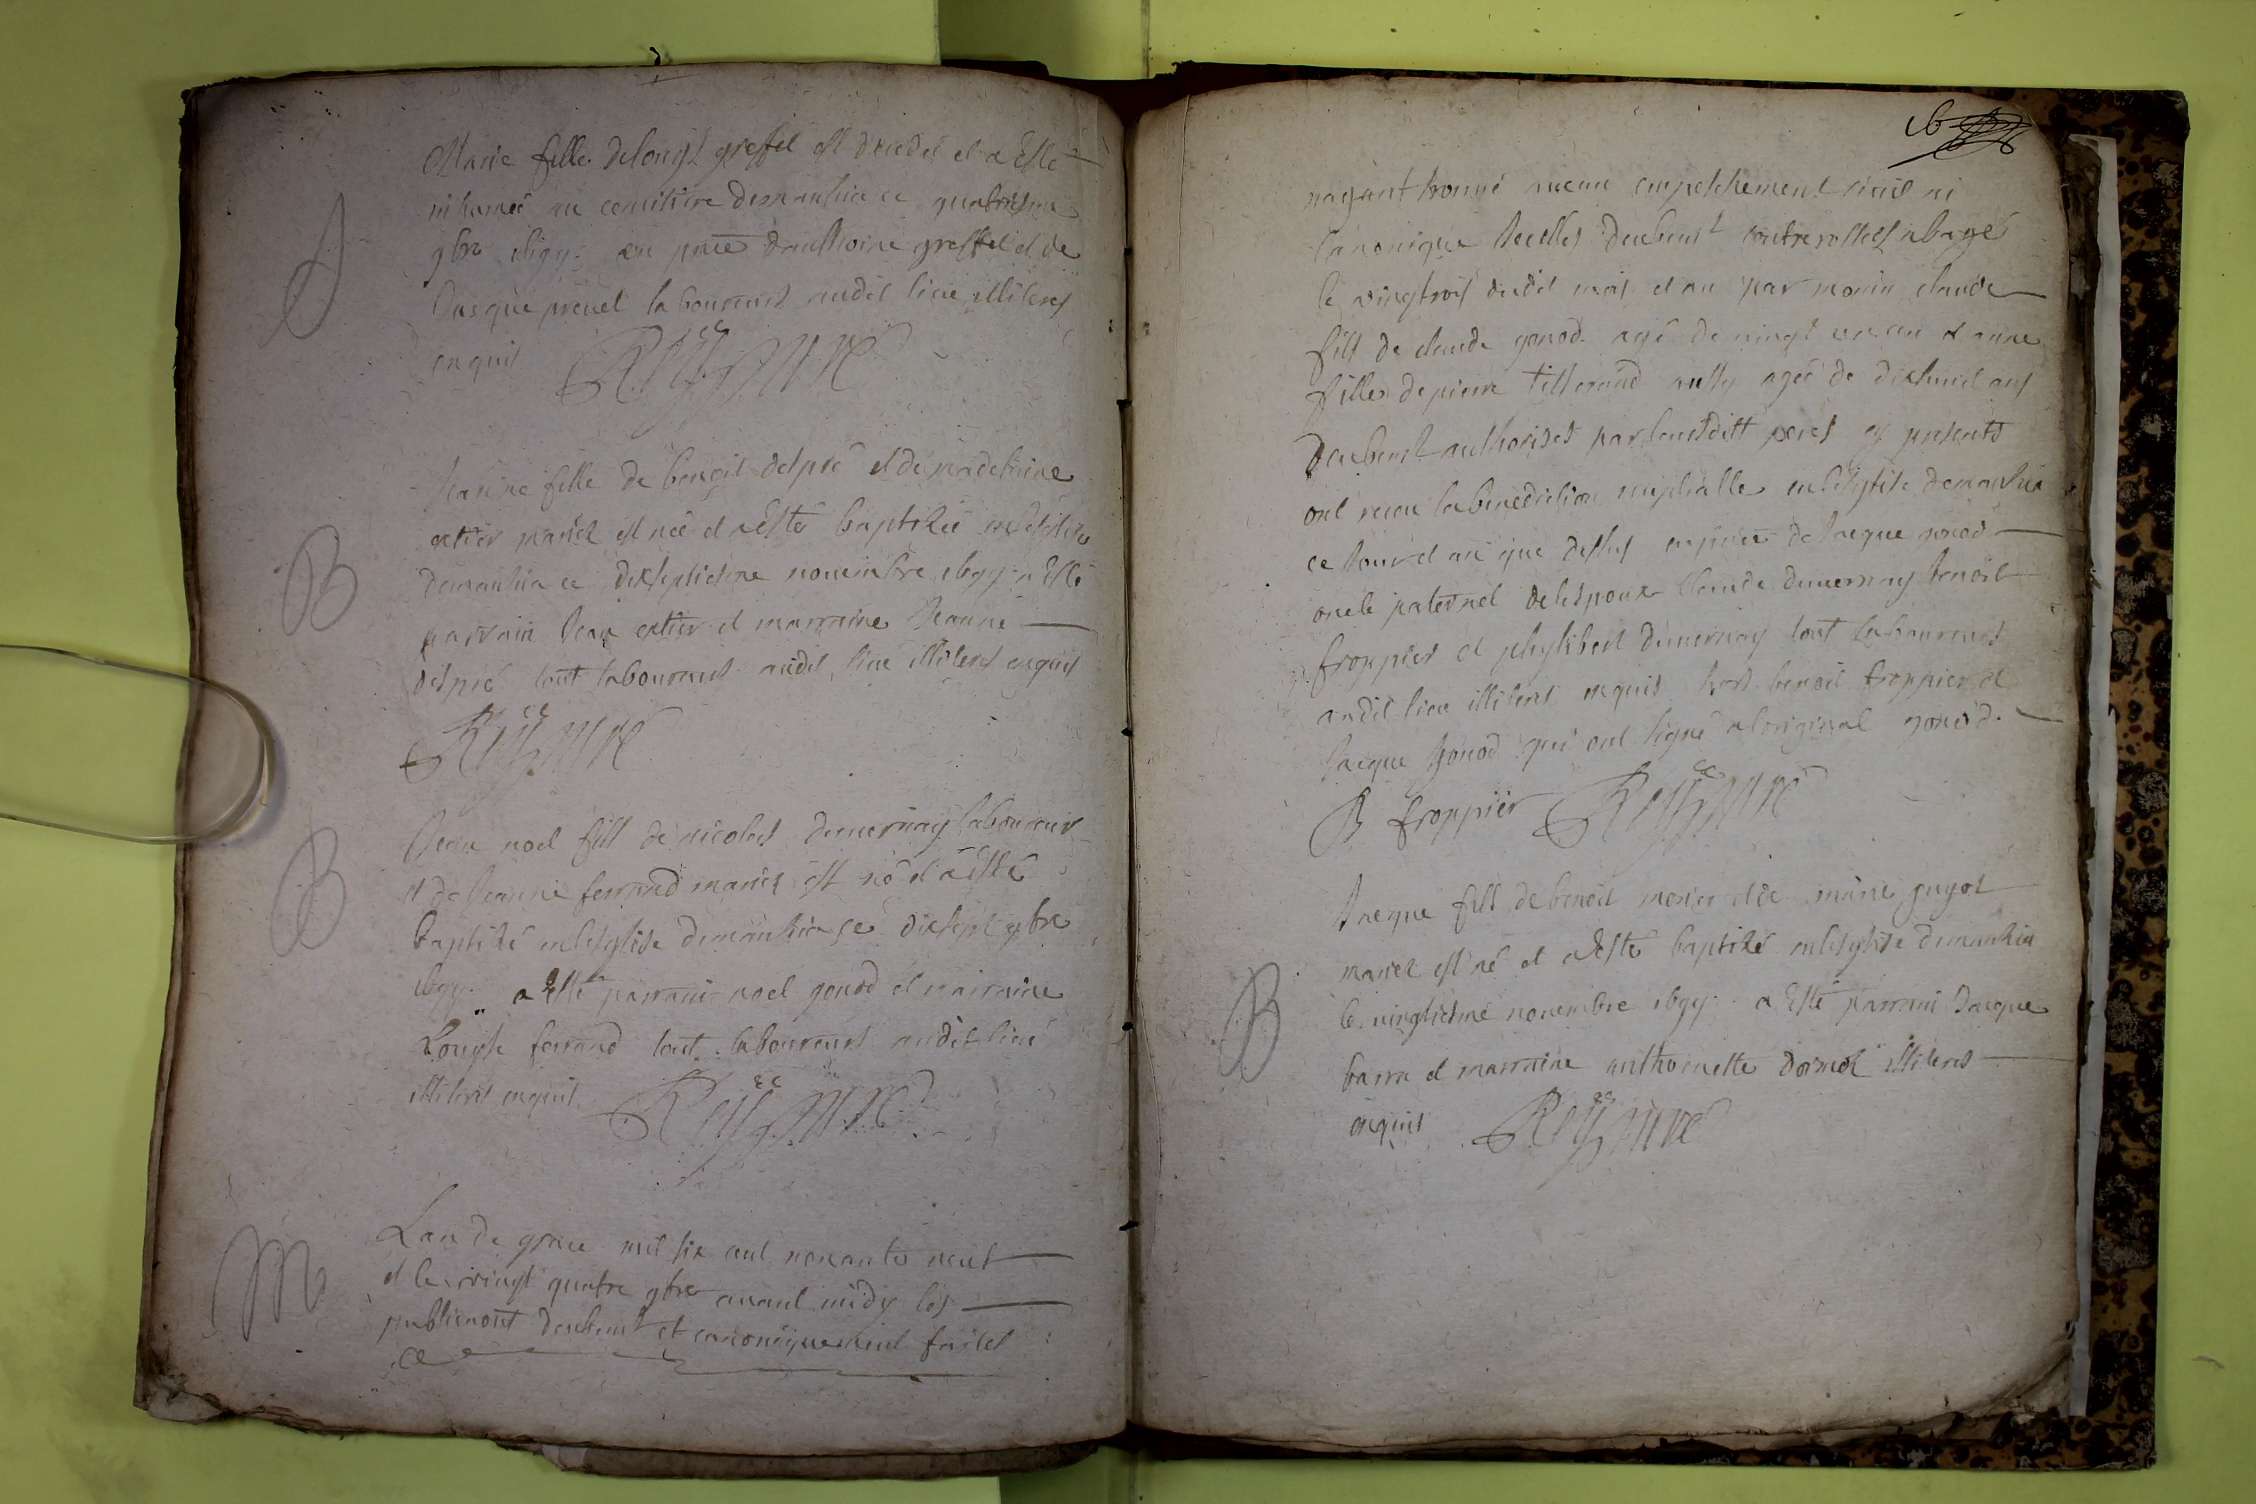 Marie fille de louys greffet est decedeé et a Esté
inhumeé au cemitiere demanthia ce quatriesme
9bre 1699. en pnce danthoine greffet et de
laboureurs audit lieu illiteres
enquis
S
Jeanne fille de benoit despré et de madelaine
mariéz est neé et a Esté baptizeé en lesglise
demanthia ce dixseptiesme novembre 1699. a Esté
parrain Jean et marraine Jeanne
despré tout laboureurs audit lieu illiteres enquis
B
Jean noel fils de nicolas dumernay laboureur
et de Jeanne ferrand mariés est né et a Esté
baptizé en lesglise demanthia ce dixsept 9bre
1699. a Esté parrain noel gonod et marraine
Louyse ferrand tout laboureurs audit lieu
illiteres enquis
B
Lan de grace mil six cent nonante neuf
et le vingt quatre 9bre avant midy les
publications deubement et canoniquement faites
ce
M
16
nayant trouvé aucun empeschement civil ni
canonique Icelles deubement
le vingtrois dudit mois et an par monsr claude
fils de claude gonod agé de vingt un an et anne
fille de pierre tisserand aussy ageé de dixhuit ans
deubemt authorizés par leursditt peres cy presents
ont receu la benediction nuptialle en lesglise demanthia
ce Jour et an que dessus en pnce de Jacque gonod
oncle paternel de lespoux Claude dumernay benoit
froppier et phylibert dumernay tout laboureurs
audit lieu illiteres enquis hors benoit froppier et
Jacque gonod qui ont signé a loriginal gonod.
B froppier
Jacque fils de benoit mercier et de marie guyot
mariez est né et a Esté baptizé en lesglise demanthia
le vingtiesme novembre 1699. a Esté parrain Jacque
barra et marraine anthoinette illiteres
enquis
B